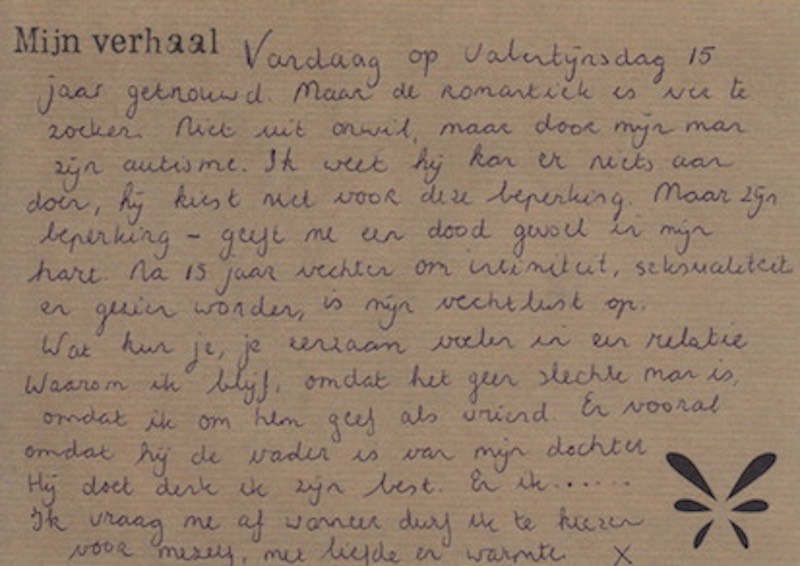 Mijn verhaal Vandaag op Valentijnsdag 15
jaar getrouwd. Maar de romantiek is ver te
zoeken. Niet uit onwil, maar door mijn man
zijn autisme. Ik weet hij kan er niets aan
doen, hij kiest niet voor deze beperking. Maar zijn
beperking - geeft me een dood gevoel in mijn
hart. Na 15 jaar vechten om intimiteit, seksualiteit
en gezien worden, is mijn vechtlust op.
Wat kun je, je eenzaam voelen in een relatie
Waarom ik blijf, omdat het geen slechte man is,
omdat ik om hem geef als vriend. En vooral
omdat hij de vader is van mijn dochter
Hij doet denk ik zijn best. En ik......
Ik vraag me af wanneer durf ik te kiezen
voor mezelf, met liefde en warmte X